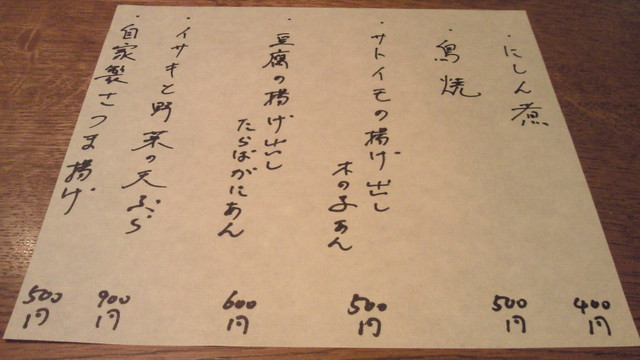 ・にしん煮
400円
・鳥焼
500円
・サトイモの揚げ出し
木の子あん
500円
・豆腐の揚げ出し
たらばがにあん
600円
・イサキと野菜の天ぷら
900円
・自家製さつま揚げ
500円